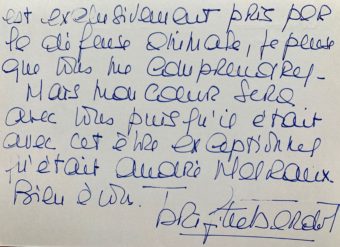 est exclusivement pris par
la défense animale, je pense
que vous me comprendrez -
Mais mon cœur sera
avec vous puisqu'il était
avec cet être exceptionnel
qu'était André Malraux
Bien à vous.
Brigitte Bardot